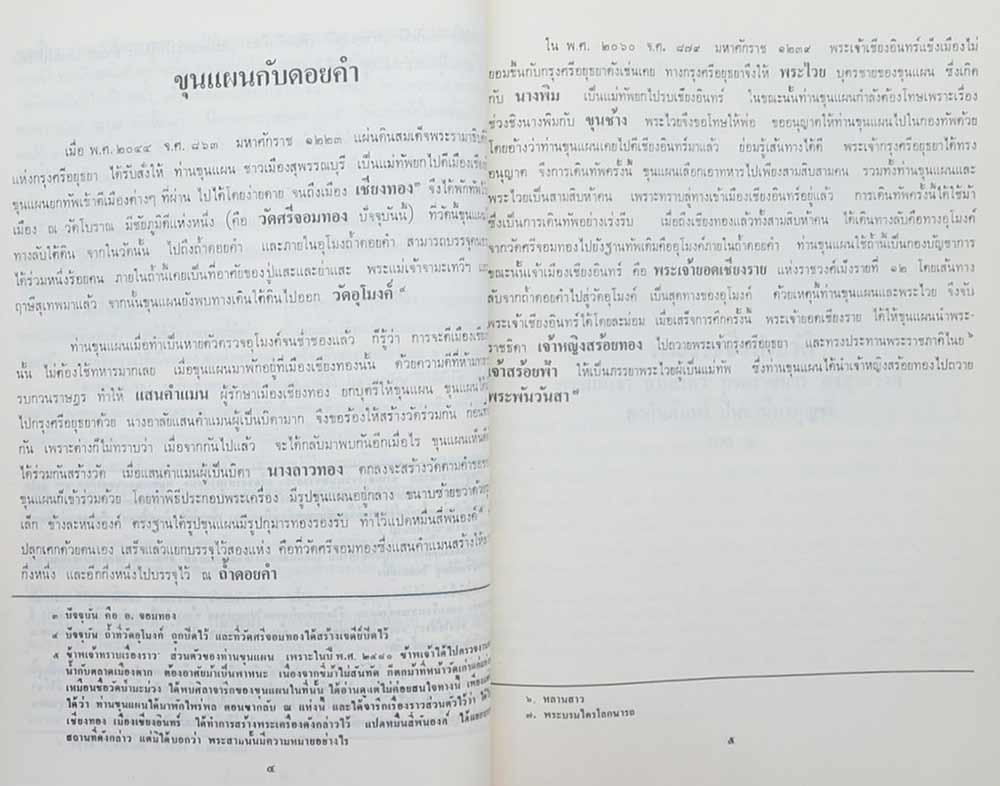 ขุนแผนกับดอยคำ
เมื่อ พ.ศ. ๒๐๔๔ จ.ศ. ๘๖๓ มหาศักราช ๑๔๒๓ แผ่นดินสมเด็จพระรามาธิบดี
แห่งกรุงศรีอยุธยา ได้รับสั่งให้ ท่านขุนแผน ชาวเมืองสุพรรณบุรี เป็นแม่ทัพยกไปตีเมืองเชีย
ขุนแผนยกทัพเข้าตีเมืองต่างๆ ที่ผ่าน ไปได้โดยง่ายดาย จนถึงเมือง เชียงทอง๓ จึงได้พักทัพใน
เมือง ณ วัดโบราณ มีชัยภูมิดีแห่งหนึ่ง (คือ วัดศรีจอมทอง ปัจจุบันนี้) ที่วัดนี้ขุนแผ
ทางลับใต้ดิน จากในวัดนั้น ไปถึงถ้ำดอยคำ และภายในอุโมงถ้ำดอยคำ สามารถบรรจุคน
ได้ร่วมหนึ่งร้อยคน ภายในถ้ำนี้เคยเป็นที่อาศัยของปู่แสะและย่าแสะ พระแม่เจ้าจามะเทวีฯ แ
ฤาษีสุเทพมาแล้ว จากนั้นขุนแผนยังพบทางเดินใต้ดินไปออก วัดอุโมงค์ ๔
ท่านขุนแผนเมื่อทำเป็นหายตัวตรวจอุโมงค์จนช่ำชองแล้ว ก็รู้ว่า การจะตีเมืองเชีย
นั้น ไม่ต้องใช้ทหารมากเลย เมื่อขุนแผนมาพักอยู่ที่เมืองเชียงทองนั้น ด้วยความดีที่ห้ามทหา
รบกวนราษฎร ทำให้ แสนคำแมน ผู้รักษาเมืองเชียงทอง ยกบุตรีให้ขุนแผน ขุนแผนได้
ไปกรุงศรีอยุธยาด้วย นางอาลัยแสนคำแมนผู้เป็นบิดามาก จึงขอร้องให้สร้างวัดร่วมกัน ก่อน
กัน เพราะต่างก็ไม่ทราบว่า เมื่อจากกันไปแล้ว จะได้กลับมาพบกันอีกเมื่อไร ขุนแผนเห็น
ได้ร่วมกันสร้างวัด เมื่อแสนคำแมนผู้เป็นบิดา นางลาวทอง ตกลงจะสร้างวัดตามคำขอ
ขุนแผนก็เข้าร่วมด้วย โดยทำพิธีประกอบพระเครื่อง มีรูปขุนแผนอยู่กลาง ขนาบซ้ายขวาด้วย
เล็ก ข้างละหนึ่งองค์ ตรงฐานใต้รูปขุนแผนมีรูปกุมารทองรองรับ ทำไว้แปดหมื่นสี่พันองค์๕
ปลุกเศกด้วยตนเอง เสร็จแล้วแยกบรรจุไว้สองแห่ง คือที่วัดศรีจอมทองซึ่งแสนคำแมนสร้างให้
กึ่งหนึ่ง และอีกกึ่งหนึ่งไปบรรจุไว้ ณ ถ้ำดอยคำ
๓ ปัจจุบัน คือ อ. จอมทอง
๔ ปัจจุบัน ถ้ำที่วัดอุโมงค์ ถูกปิดไว้ และที่วัดศรีจอมทองได้สร้างเจดีย์ปิดไว้
๕ ข้าพเจ้าทราบเรื่องราว ส่วนตัวของท่านขุนแผน เพราะในปี พ.ศ. ๒๔๘๐ ข้าพเจ้าได้ไปตรวจงาน
น้ำกับตลาดเมืองตาก ต้องอาศัยม้าเป็นพาหนะ เนื่องจากขี่ม้าไม่สันทัด ก็ตกม้าที่หน้าวัดเก่า
เหมือนชื่อวัดป่ามะม่วง ได้พบศิลาจารึกของขุนแผนในที่นั้น ได้อ่านดูแต่ไม่ค่อยสนใจทางนี้ เพียง
ได้ว่า ท่านขุนแผนได้มาพักไพร่พล ตอนขากลับ ณ แห่งนี้ และได้จารึกเรื่องราวส่วนตัวไว้ว่า ได้
เชียงทอง เมืองเชียงอินทร์ ได้ทำการสร้างพระเครื่องดังกล่าวไว้ แปดหมื่นสี่พันองค์ ได้แยก
สถานที่ดังกล่าว แต่มิได้บอกว่า พระสามนั้นมีความหมายอย่างไร
๔
ใน พ.ศ. ๒๐๖๐ จ.ศ. ๘๗๙ มหาศักราช ๑๔๓๙ พระเจ้าเชียงอินทร์แข็งเมืองไม่
ยอมขึ้นกับกรุงศรีอยุธยาดังเช่นเคย ทางกรุงศรีอยุธยาจึงให้ พระไวย บุตรชายของขุนแผน ซึ่งเกิด
กับ นางพิม เป็นแม่ทัพยกไปรบเชียงอินทร์ ในขณะนั้นท่านขุนแผนกำลังต้องโทษเพราะเรื่อง
ช่วงชิงนางพิมกับ ขุนช้าง พระไวยจึงขอโทษให้พ่อ ขออนุญาตให้ท่านขุนแผนไปในกองทัพด้วย
โดยอ้างว่าท่านขุนแผนเคยไปตีเชียงอินทร์มาแล้ว ย่อมรู้เส้นทางได้ดี พระเจ้ากรุงศรีอยุธยาได้ทรง
อนุญาต จึงการเดินทัพครั้งนี้ ขุนแผนเลือกเอาทหารไปเพียงสามสิบสามคน รวมทั้งท่านขุนแผนและ
พระไวยเป็นสามสิบห้าคน เพราะทราบลู่ทางเข้าเมืองเชียงอินทร์อยู่แล้ว การเดินทัพครั้งนี้ได้ใช้ม้า
ซึ่งเป็นการเดินทัพอย่างเร่งรีบ เมื่อถึงเชียงทองแล้วทั้งสามสิบห้าคน ได้เดินทางลับคือทางอุโมงค์
จากวัดศรีจอมทองไปยังฐานทัพเดิมคืออุโมงค์ภายในถ้ำดอยคำ ท่านขุนแผนใช้ถ้ำนี้เป็นกองบัญชาการ
ขณะนั้นเจ้าเมืองเชียงอินทร์ คือ พระเจ้ายอดเชียงราย แห่งราชวงศ์เม็งรายที่ ๑๒ โดยเส้นทาง
ลับจากถ้ำดอยคำไปสู่วัดอุโมงค์ เป็นสุดทางของอุโมงค์ ด้วยเหตุนี้ท่านขุนแผนและพระไวย จึงจับ
พระเจ้าเชียงอินทร์ได้โดยละม่อม เมื่อเสร็จการศึกครั้งนี้ พระเจ้ายอดเชียงราย ได้ให้ขุนแผนนำพระ-
ราชธิดา เจ้าหญิงสร้อยทอง ไปถวายพระเจ้ากรุงศรีอยุธยา และทรงประทานพระราชภาคิไนย ๖
เจ้าสร้อยฟ้า ให้เป็นภรรยาพระไวยผู้เป็นแม่ทัพ ซึ่งท่านขุนแผนได้นำเจ้าหญิงสร้อยทองไปถวาย
พระพันวันสา ๗
๖. หลานสาว
๗. พระบรมไตรโลกนารถ
๕